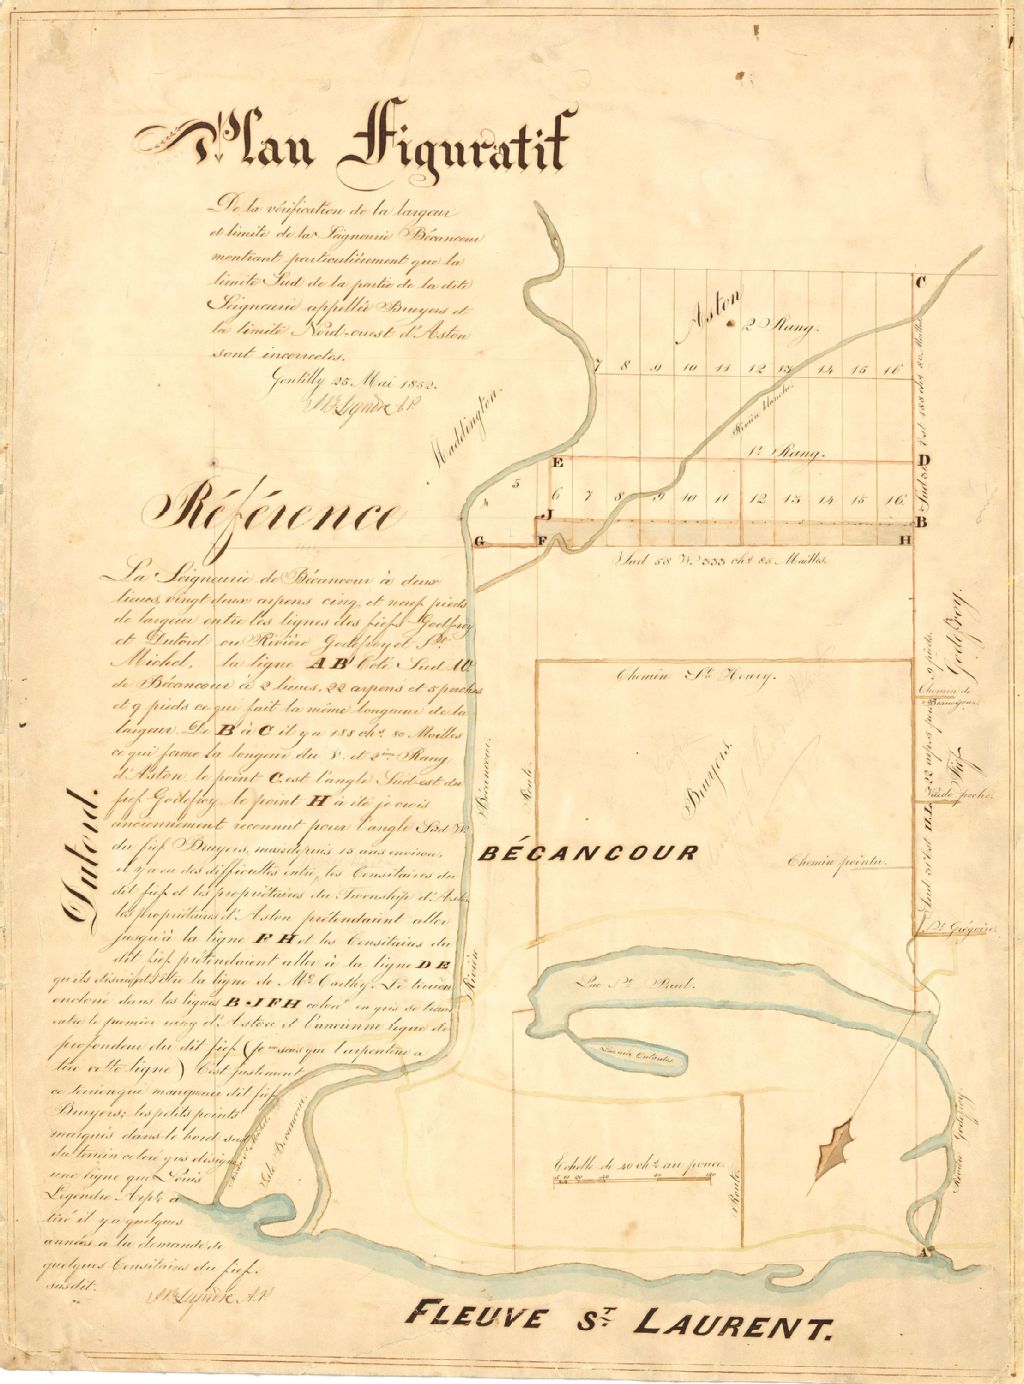 Plan Figuratif
De la vérification de la largeur
et limite de la Seigneurie Bécancour
montrant particulièrement que la
limite Sud de la partie de la dite
Seigneurie appellée Bruyers et
la limite Nord-ouest d'Aston
sont incorrectes.
Gentilly 25 Mai 1852.
A.P.
Maddington.
Aston
2 Rang.
7 8 9 10 11 12 13 14 15 16
Rivière blanche.
1r Rang.
4 5 6 7 8 9 10 11 12 13 14 15 16
C
D
B
H
E
J
F
G
Sud 58 W. 333 chs 85 Mailles.
Référence
La Seigneurie de Bécancour à deux
lieues, vingt deux arpens cinq et neuf pieds
de largeur entre les lignes des fiefs Godefroy
et Dutord ou Rivière Godefroy et St
Michel, la ligne A B Coté Sud
de Bécancour à 2 lieues, 22 arpens et 5 perches
et 9 pieds ce qui fait la même longueur de la
largeur. De B à C il y a 188 chs 80 Mailles
ce qui forme la longeur du 1r et 2ème Rang
d'Aston le point C est l'angle Sud-est du
fief Godefroy le point H à été je crois
anciennement reconnut pour l'angle Sud
du fief Bruyers, mais depuis 15 ans environ,
il y a eu des difficultés entre les Censitaires du
dit fief et les propriétaires du Township d'Aston
les propriétaires d'Aston prétendaient aller
jusqu'à la ligne F H et les Censitaires du
dit fief prétendaient aller à la ligne D E
qu'ils disaient être la ligne de Mc Carthy. Le terrain
enclavé dans les lignes B J F H coloré en gris se trouve
entre le premier rang d'Aston et l'ancienne ligne de
profondeur du dit fief (je sais que l'arpenteur a
tiré cette ligne) C'est justement
ce terrain qui manque au dit fief
Bruyers; les petits points
marqués dans le bord sud
du terrain coloré gris désigne
une ligne que Louis
Legendre Arptr a
tiré il y a quelques
années à la demande de
quelques Censitaires du fief
susdit.
A.P.
Dutord.
Chemin St Henry.
Bruyers.
Route.
Bécancour.
Rivière
BÉCANCOUR
Fief Godefroy.
Chemin de
Vide poche.
Chemin pointu.
St Grégoire.
Lac St Paul.
Isle Bécancour.
Echelle de 40 chs au pouce.
Route.
Rivière Godefroy.
A
FLEUVE ST LAURENT.